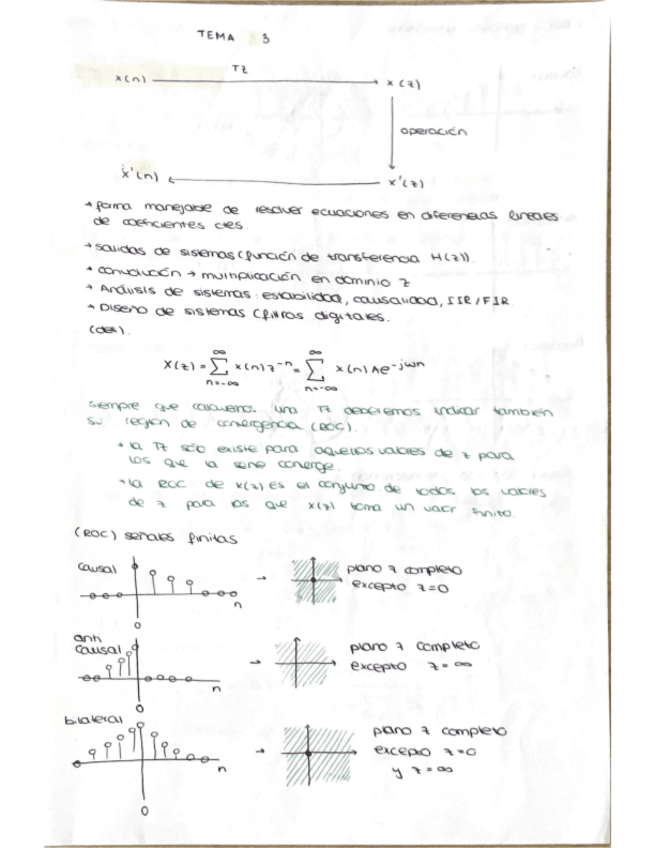 TEMA 3
TZ
x(n) → x(z)
operación
x'(n) ← x'(z)
→ forma manejable de resolver ecuaciones en diferencias lineales
de coeficientes ctes.
→ salidas de sistemas (función de transferencia H(z)).
→ convolución → multiplicación en dominio z
→ Análisis de sistemas: estabilidad, causalidad, IIR/FIR.
→ Diseño de sistemas (filtros digitales.
(def).
X(z) = ∑ n=-∞ ∞ x(n) z^-n = ∑ n=-∞ ∞ x(n) A e^-jwn
Siempre que calculemos una TZ deberemos indicar también
su región de convergencia (ROC).
• la TZ sólo existe para aquellos valores de z para
los que la serie converge.
• la ROC de x(z) es el conjunto de todos los valores
de z para los que x(z) toma un valor finito.
(ROC) señales finitas
causal
n
0
→ plano z completo
excepto z=0
anti
causal
n
0
→ plano z completo
excepto z=∞
bilateral
n
0
→ plano z completo
excepto z=0
y z=∞